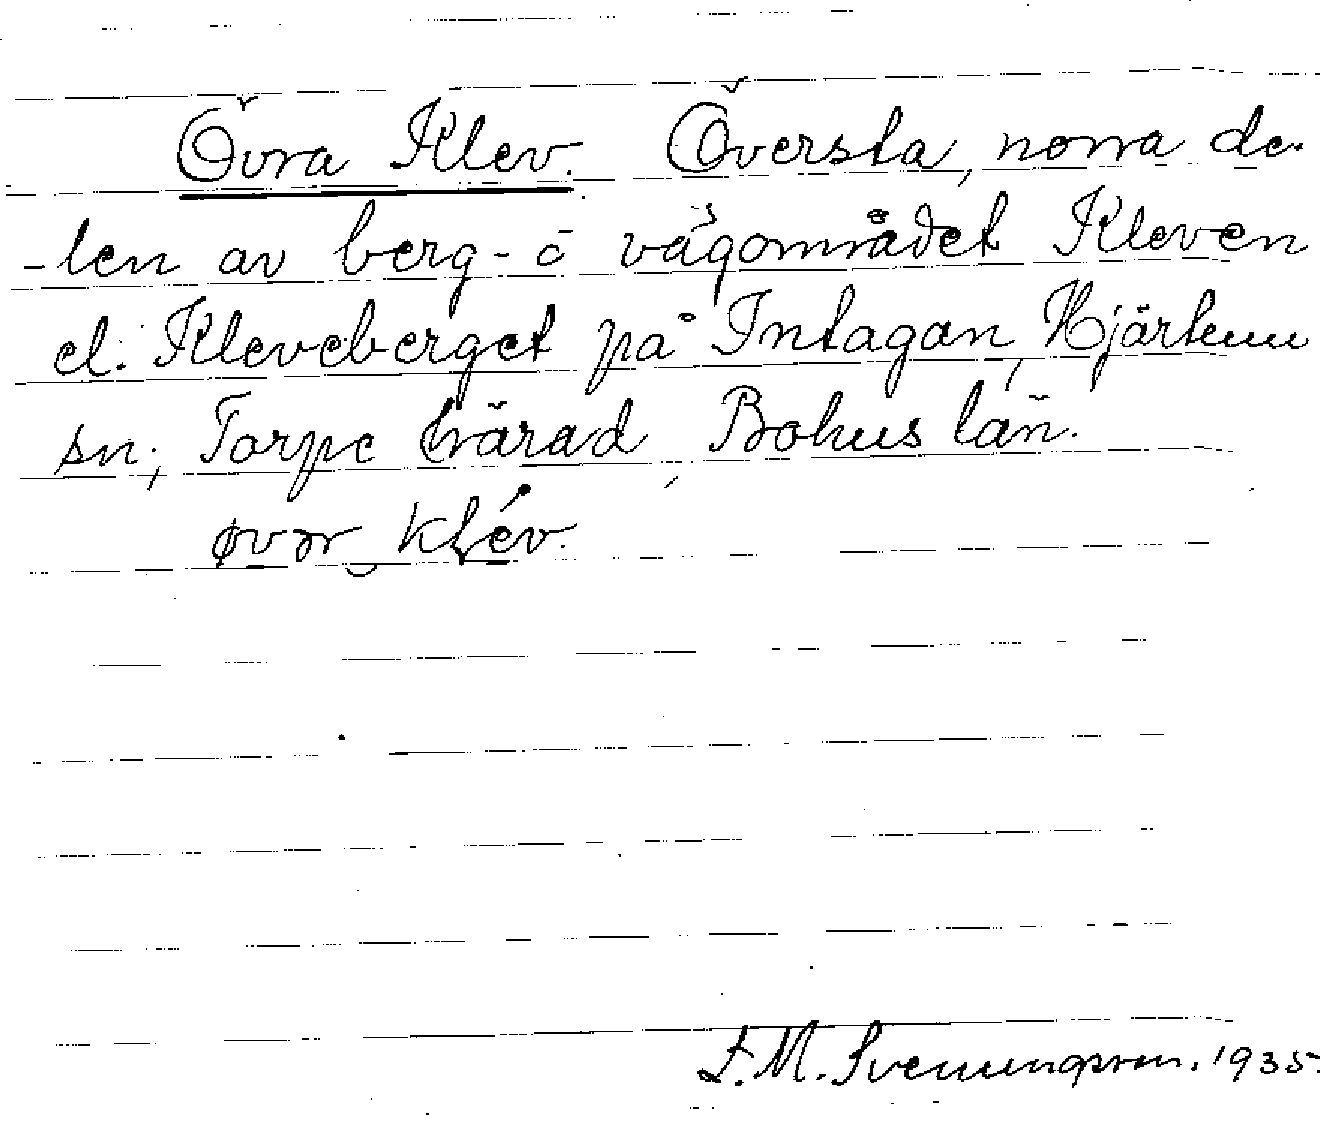 Övra Klev. Översta, norra de-
-len av berg- o vägområdet Kleven
el. Kleveberget på Intagan, Hjärtum
sn., Torpe härad, Bohus län.
øvər klév.
E. M. Svenungsson. 1935.